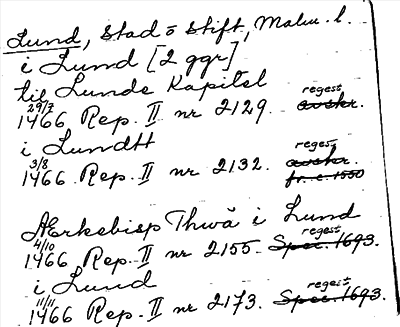 Lund, Stad o Stift, Malm. l.
i Lund [2 ggr]
til Lunde Kapitel
29/7 regest
1466 Rep. II nr 2129. avskr.
i Lundtt
3/8 regest
1466 Rep. II nr 2132. avskr.
fr. c. 1550
Ærkebisp Thwã i Lund
4/10 regest
1466 Rep. II nr 2155. Spec. 1693.
i Lund
11/11 regest
1466 Rep. II nr 2173. Spec. 1693.